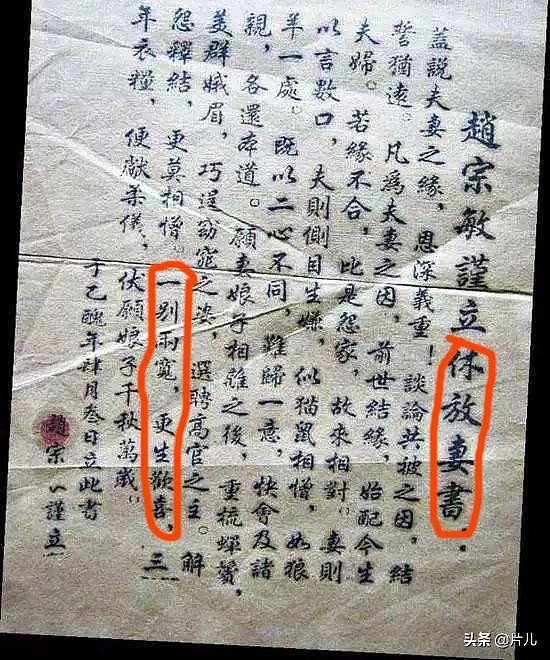 趙宗敏謹立休放妻書:
蓋説夫妻之緣,恩深義重!談論共被之因,結
誓猶遠。凡為夫妻之因,前世結緣,始配今生
夫婦。若緣不合,比是怨家,故來相對。妻則
以言數口,夫則側目生嫌,似猫鼠相憎,如狼
羊一處。既以二心不同,難歸一意,快會及諸
親,各還本道。願妻娘子相離之後,重梳蟬鬢,
美群娥眉,巧逞窈窕之姿,選聘高官之主。解
怨釋結,更莫相憎。一别兩寬,更生歡喜,三
年衣糧,便獻柔儀。伏願娘子千秋萬歲。
于乙醜年肆月叁日立此書
趙宗一謹立
头条 @片儿